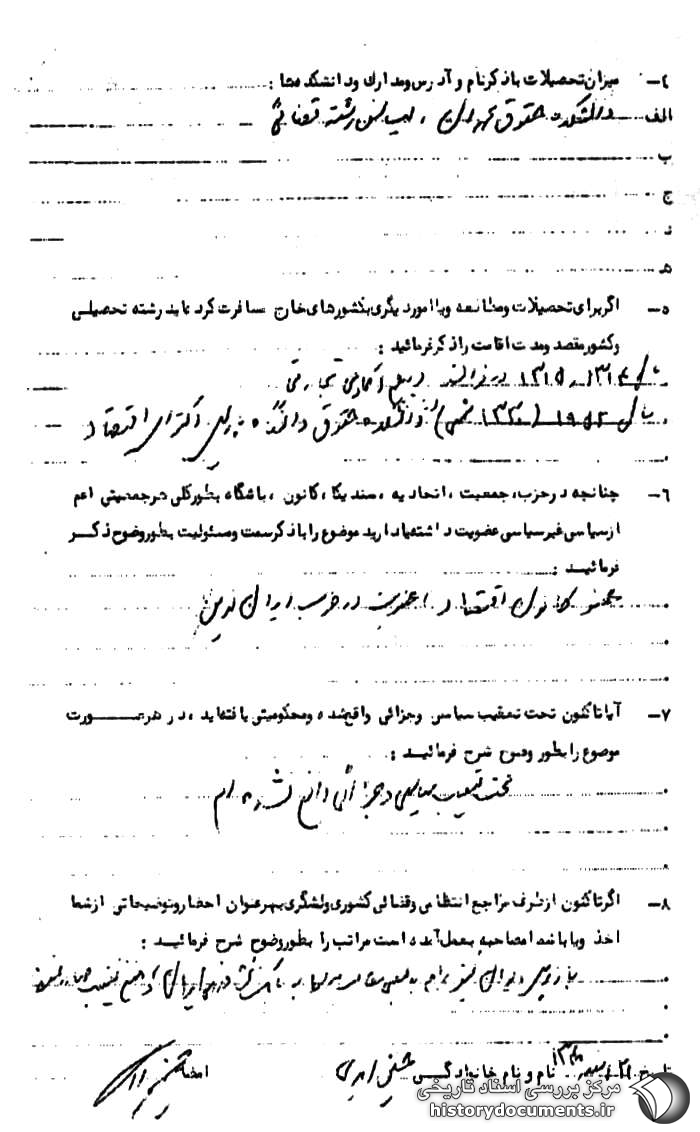 ٤- میزان تحصیلات با ذکر نام و آدرس و مدارك و دانشکده ها :
الف دانشکده حقوق تهران ، لیسانس رشته قضائی
ب
ج
د
هـ
٥- اگر برای تحصیلات و مطالعه و یا امور دیگری بکشورهای خارج مسافرت کرده اید رشته تحصیلی
و کشور مقصد و مدت اقامت را ذکر فرمائید :
سال ١٣١٤ ١٣١٥ در فرانسه دیپلم تجارتی
سال ١٩٥٢ (١٣٣٠ شمسی) دانشکده حقوق برای دکترای اقتصاد
٦- چنانچه در حزب، جمعیت ، اتحادیه ، سندیکا ، کانون ، باشگاه بطور کلی هر جمعیتی اعم
از سیاسی غیر سیاسی عضویت داشته یا دارید موضوع را با ذکر سمت و مسئولیت بطور وضوح ذکر
فرمائید :
عضو کانون اقتصاد ، عضویت در حزب ایران نوین
٧- آیا تاکنون تحت تعقیب سیاسی و جزائی واقع شده و محکومیتی یافته اید ، در هر صورت
موضوع را بطور وضوح شرح فرمائید :
تحت تعقیب سیاسی و جزائی واقع نشده ام
٨- اگر تاکنون از طرف مراجع انتظامی و قضائی کشوری و لشگری بهر عنوان احضار و توضیحاتی از شما
اخذ و یا با شما مصاحبه بعمل آمده است مراتب را بطور وضوح شرح فرمائید :
تاریخ نام و نام خانوادگی امضاء
مرکز بررسی اسناد تاریخی
historydocuments.ir